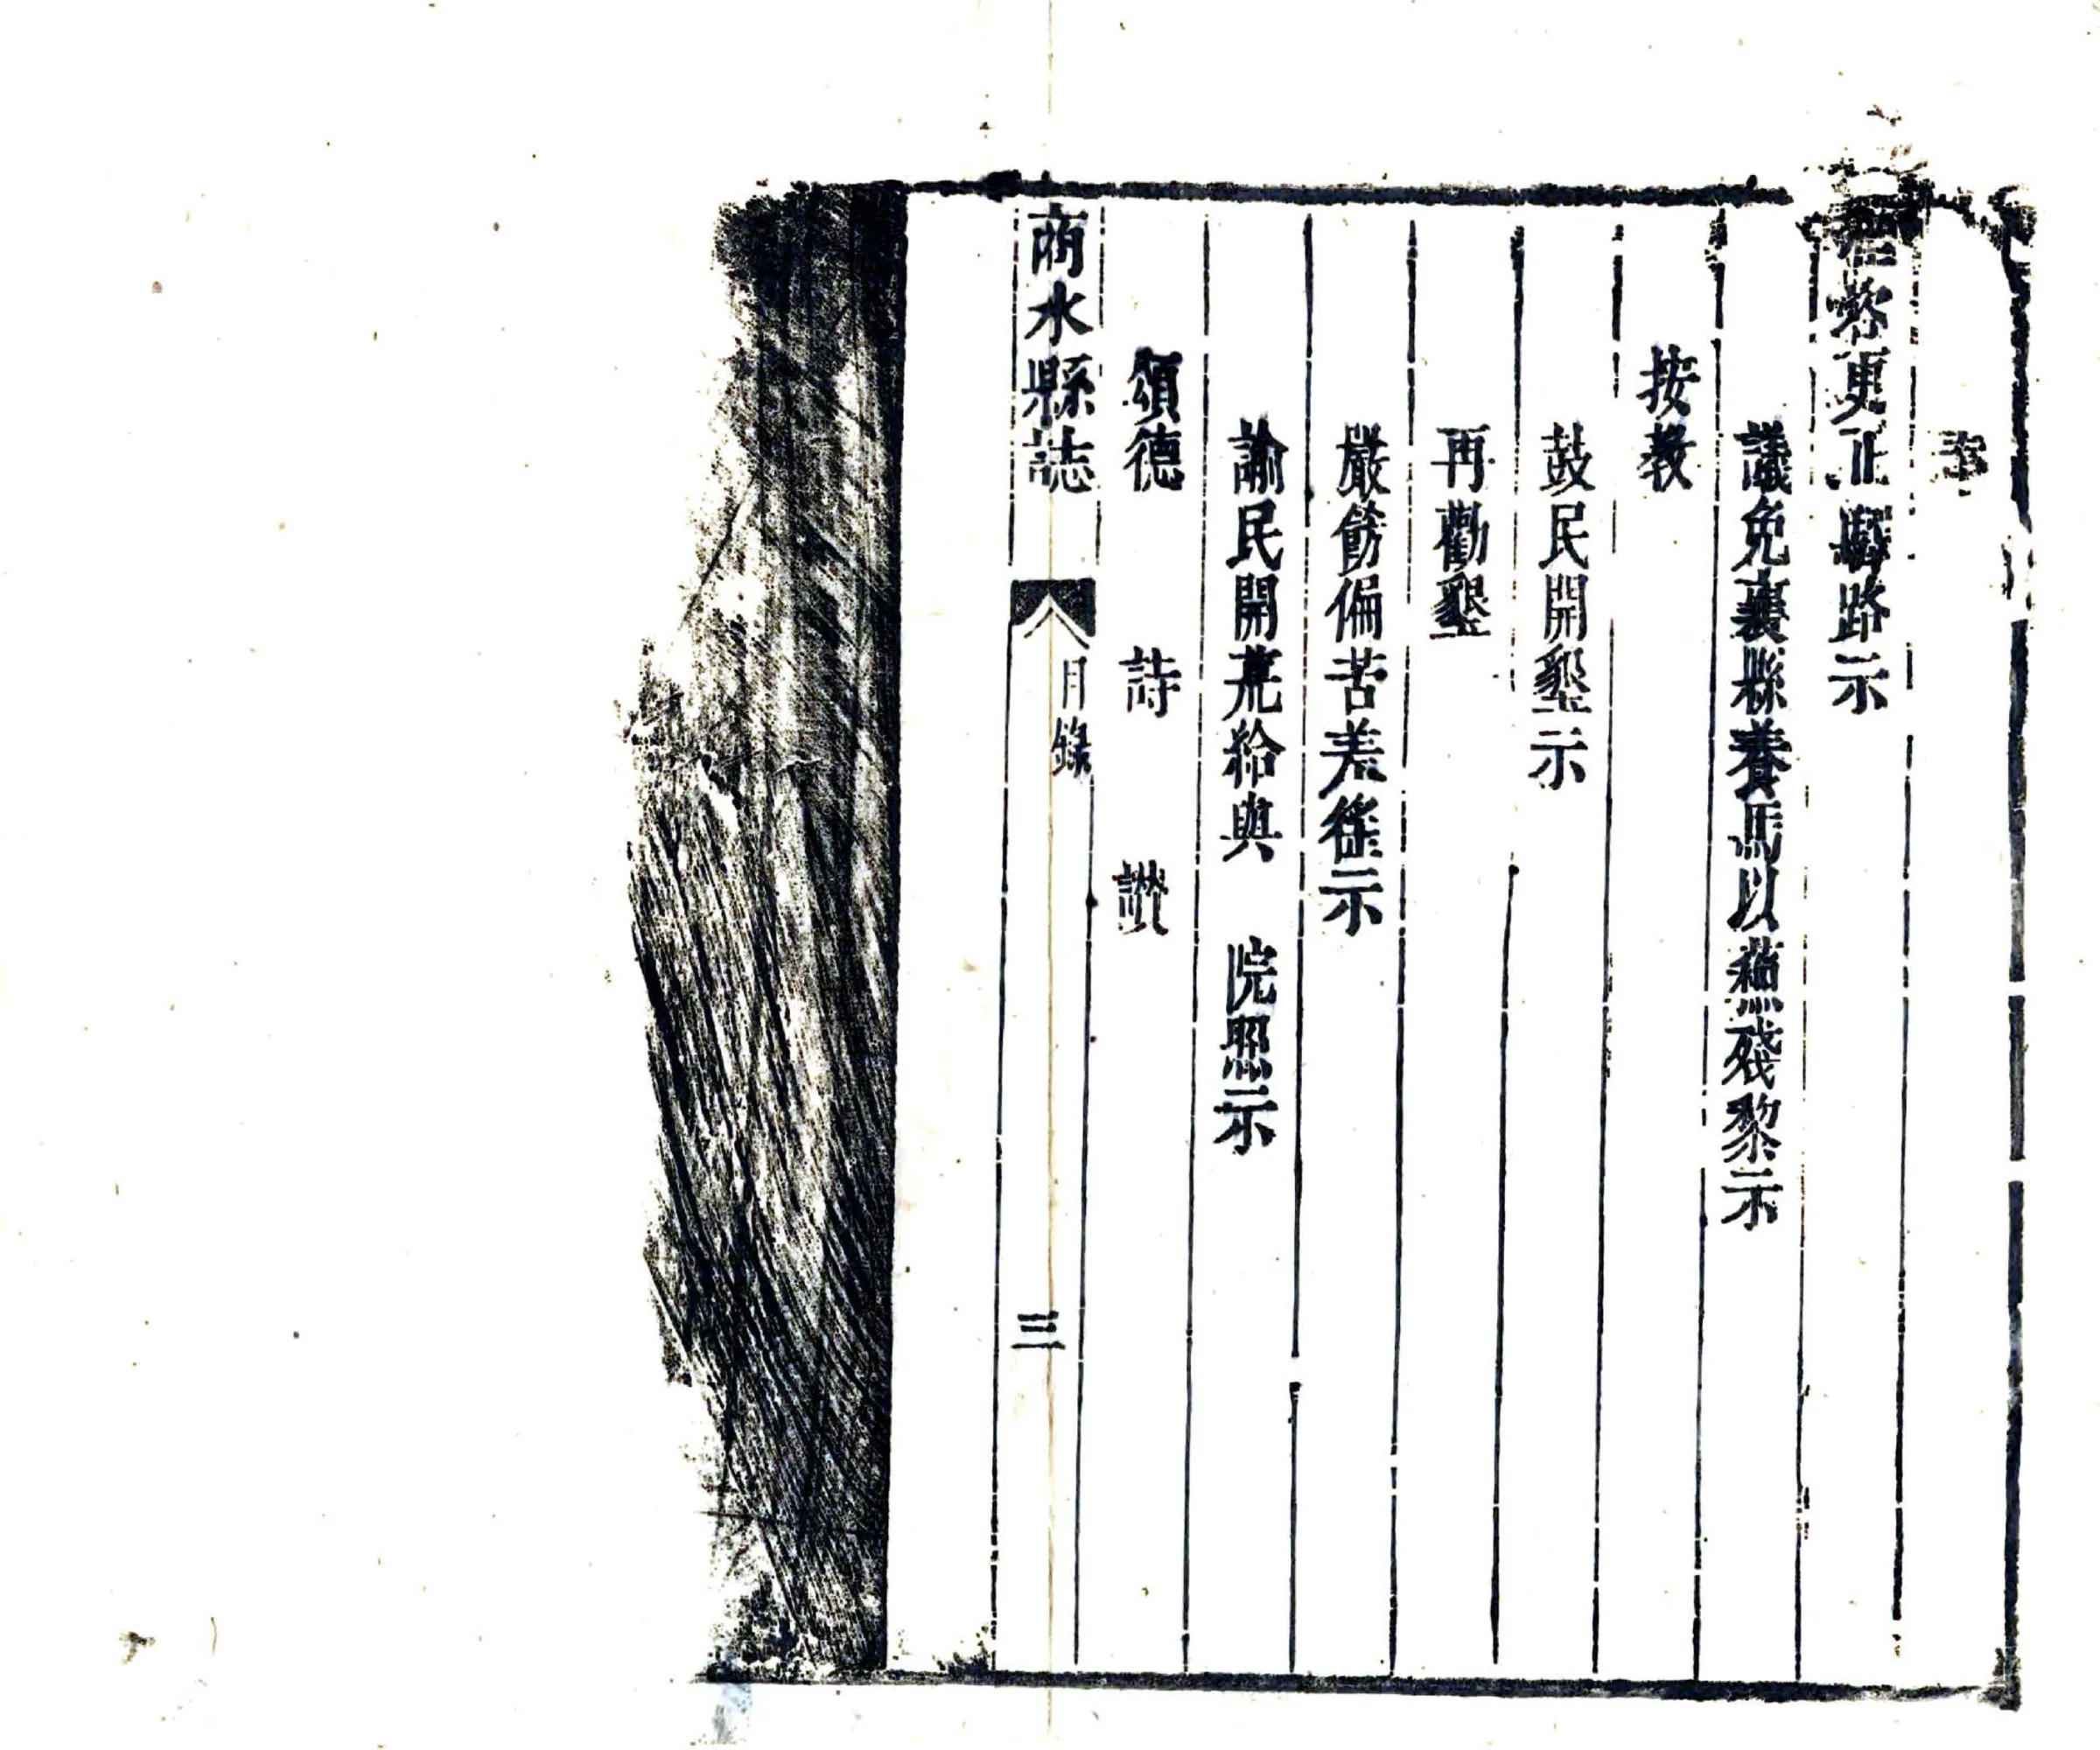 奉
督察更正驛路示
議免襄縣養馬以蘓殘黎示
按教
鼓民開墾示
再勸墾
嚴飭偏苦差徭示
諭民開荒給與 院照示
頌德 詩 讃
商水縣誌 目錄 三